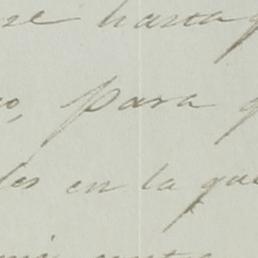 se hasta q
o, para q
les en la que